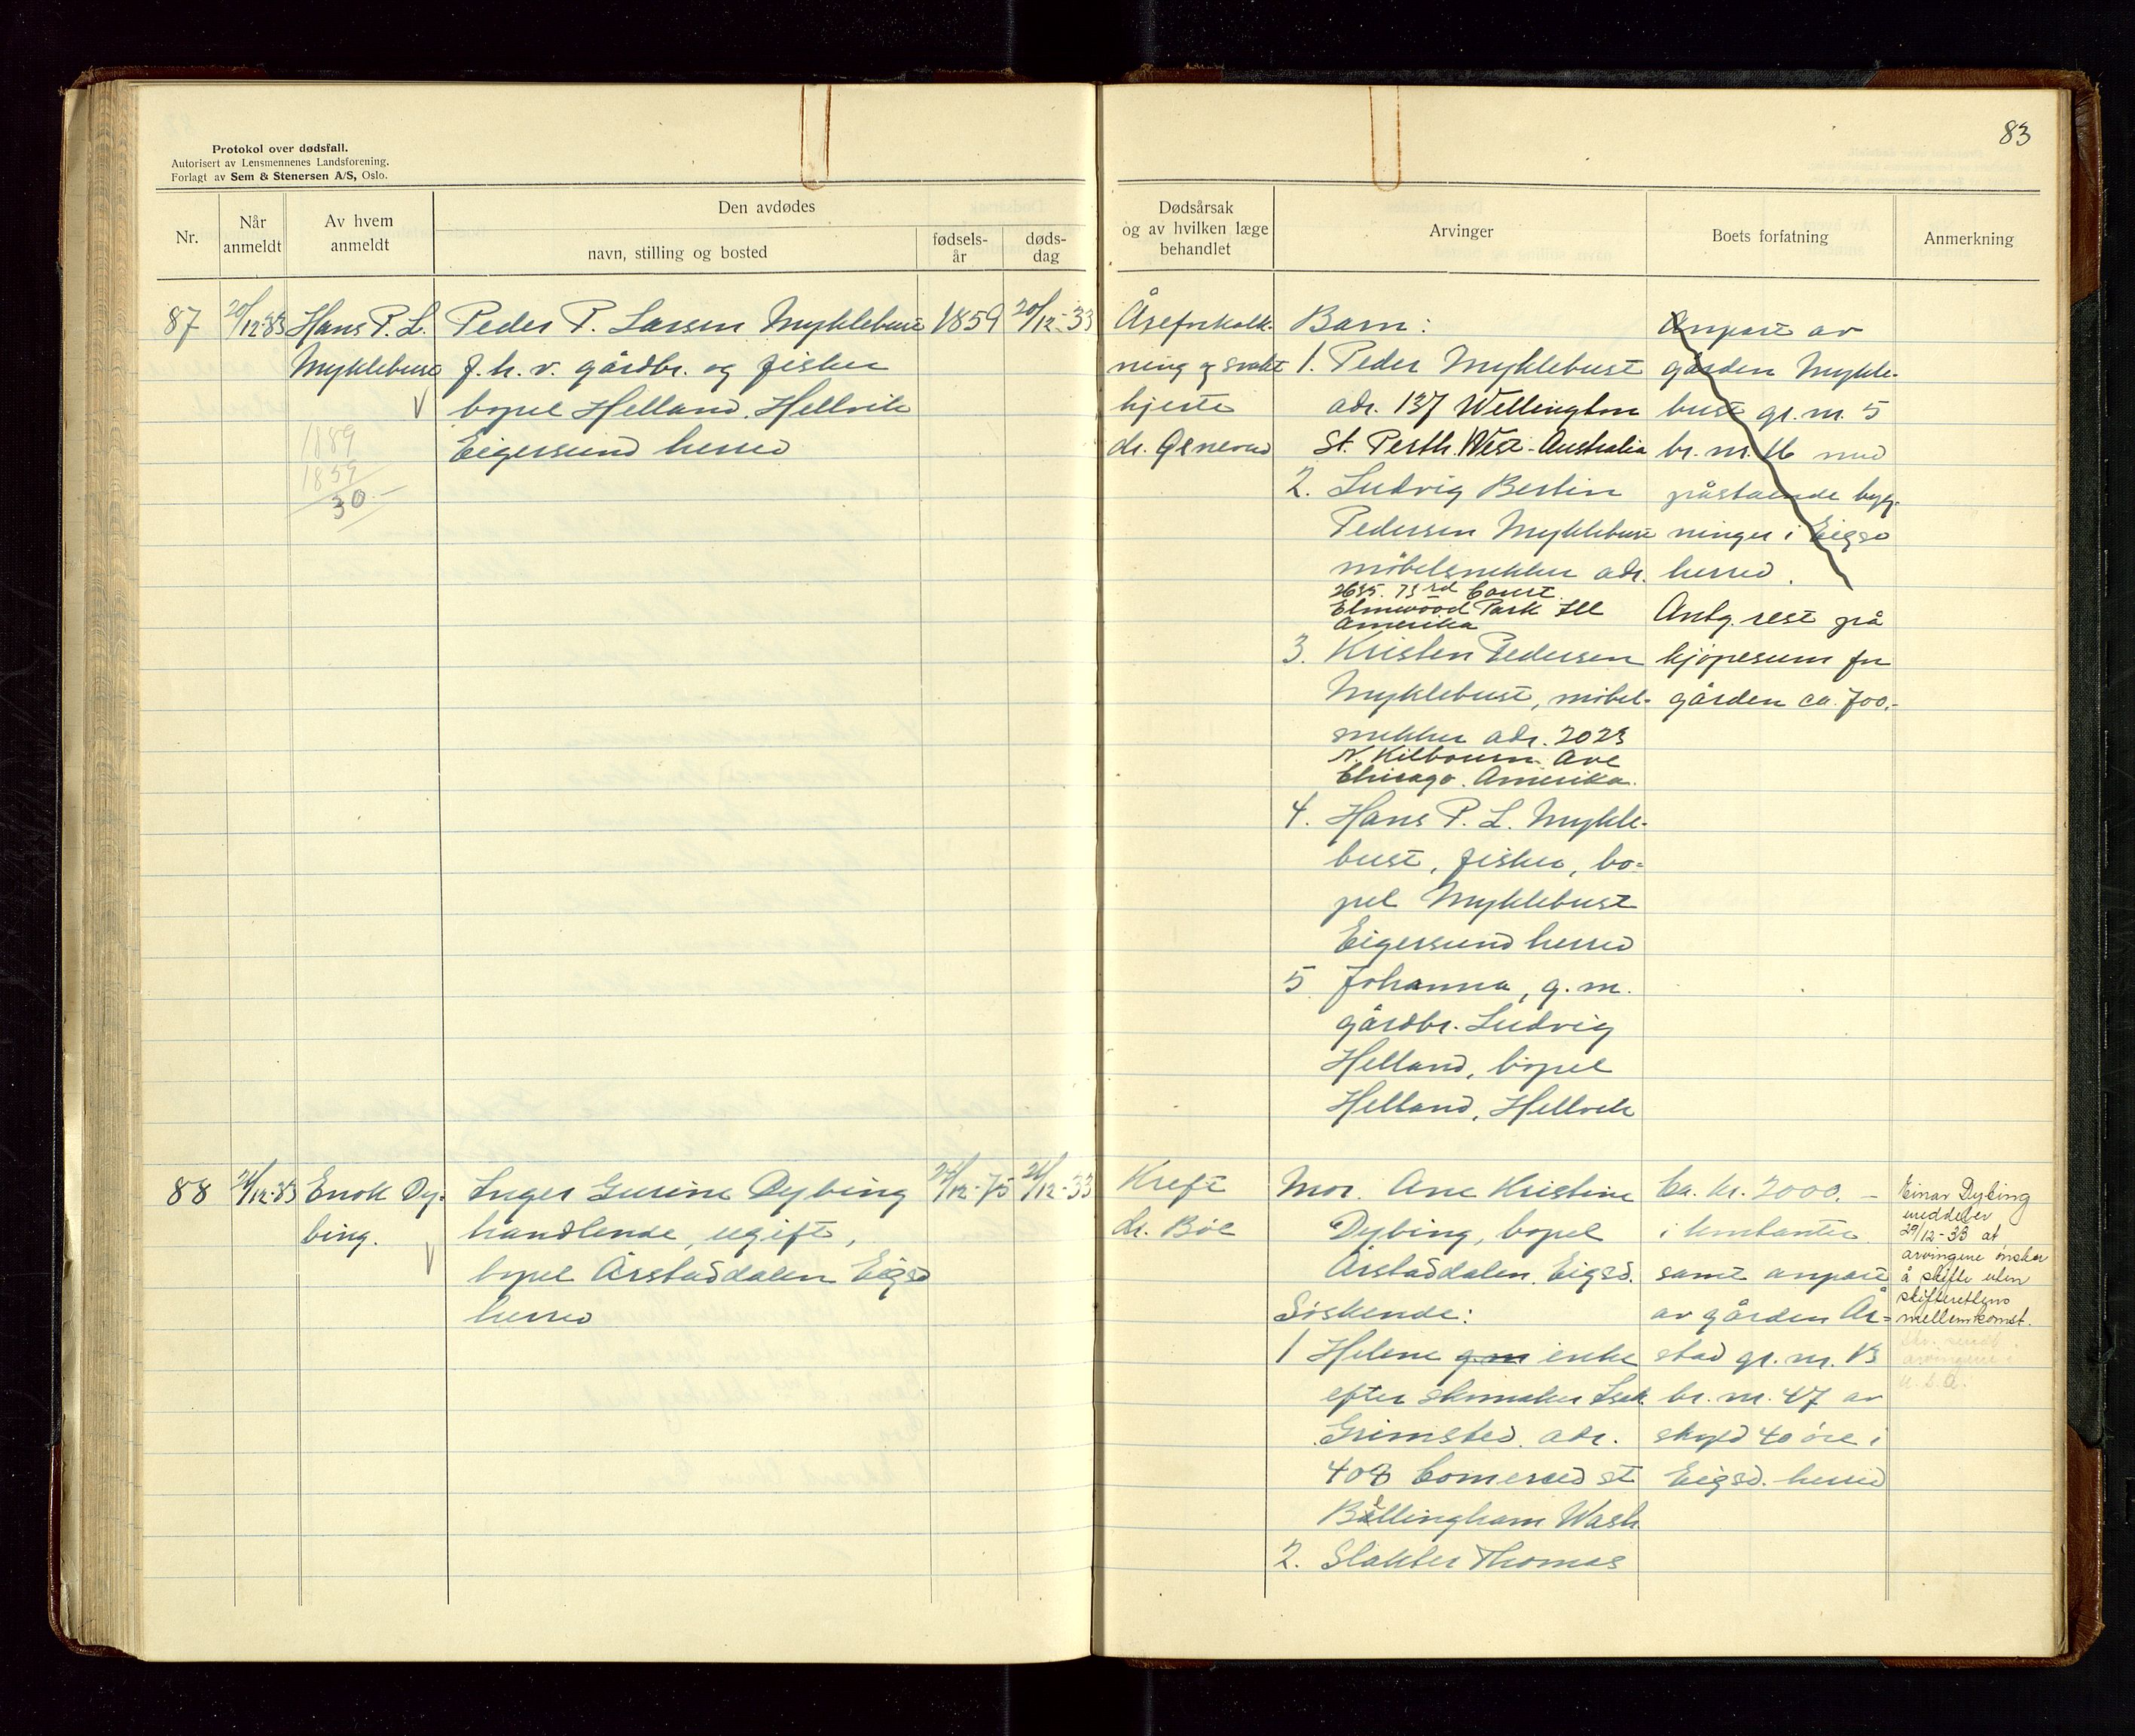 83
Protokol over dødsfall.
Autorisert av Lensmennenes Landsforening.
Forlagt av Sem & Stenersen A/S, Oslo.
Nr.
Når anmeldt
Av hvem anmeldt
Den avdødes
navn, stilling og bosted
fødsels-år
døds-dag
Dødsårsak og av hvilken læge behandlet
Arvinger
Boets forfatning
Anmerkning
87
20/12-33
Hans P. L.
Myklebust
1889
1859
30
Peder P. Larsen Myklebust
f. h. v. gårdbr. og fisker
bopel Helland, Hellvik
Eigersund herred
1859
20/12-33
Åreforkalk-
ning og svakt
hjerte
dr.
Barn:
1. Peder Myklebust
adr. 137 Wellington
St. Perth. West-Australia
2. Ludvig Bertin
Pedersen Myklebust
møbelsnekker adr.
2635. 73rd Court
Elmwood Park Ill
Amerika
3. Kristen Pedersen
Myklebust, møbel-
snekker adr. 2023
N. Kilbourn Ave
Chicago. Amerika.
4. Hans P. L. Mykle-
bust, fisker, bo-
pel Myklebust
Eigersund herred
5 Johanna, g. m.
gårdbr. Ludvig
Helland, bopel
Helland, Hellvik
Anpart av
gården Mykle-
bust gr. nr. 5
br. nr. 16 med
påstående byg-
ninger i Eigsd
herred.
Antg. rest på
kjøpesum for
gården ca. 700.-
88
Enok Dy-
bing.
Inger Gurine Dybing
handlende, ugift,
bopel Årstaddalen Eigsd
herred
24/12-75
Kreft
dr. Bøe
Mor. Ane Kristine
Dybing, bopel
Årstaddalen. Eigsd.
Søskende:
1 Helene g m enke
efter skomaker Isak
Grimsted. adr.
408 Comerced st
Bellingham Wash.
2. Slakter Thomas
Ca. kr. 2000. -
i kontanter
samt anpart
av gården År-
stad gr. nr. 13
br. nr. 47 av
skyld 40 øre i
Eigsd. herred
Einar Dybing
meddeler
29/12-33 at
arvingene ønsker
å skifte uten
skifterettens
mellemkomst.
sendt
arvingene i
U.S.A.